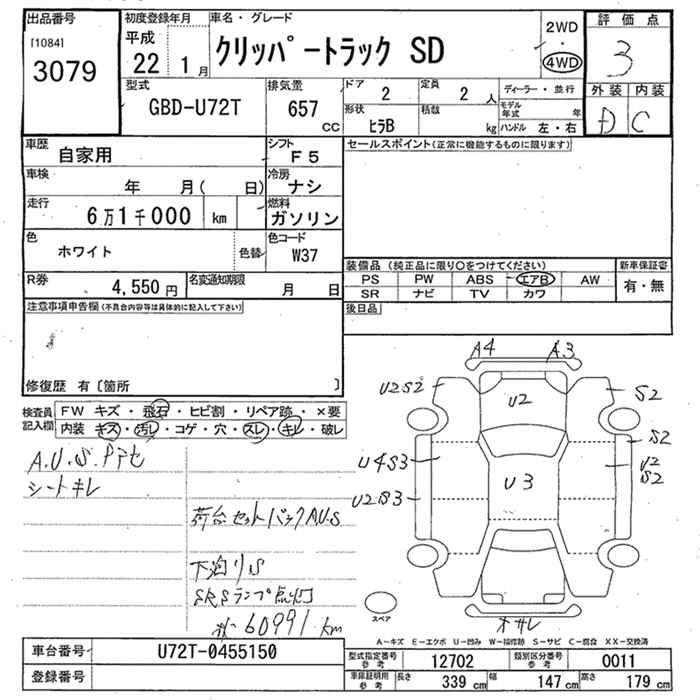 出品番号
[1084]
3079
初度登録年月
平成
22 1月
車名・グレード
クリッパートラック SD
2WD
・
4WD
評価点
3
外装 内装
D C
型式
GBD-U72T
排気量
657
CC
ドア
2
定員
2 人
形状
ヒラB
積載
kg
ディーラー・並行
モデル年式 年
ハンドル 左・右
車歴
自家用
シフト
F5
車検
年 月( 日)
冷房
ナシ
走行
6万1千000 km
燃料
ガソリン
色
ホワイト
色替
色コード
W37
R券
4,550円
名変通知期限
月 日
セールスポイント(正常に機能するものに限ります)
装備品(純正品に限り○をつけてください)
新車保証書
PS PW ABS エアB AW
SR ナビ TV カワ
有・無
後日品
注意事項申告欄(不具合内容等は具体的に記入して下さい)
修復歴 有〔箇所 〕
検査員記入欄
FW キズ・飛石・ヒビ割・リペア跡・×要
内装 キズ・汚レ・コゲ・穴・スレ・キレ・破レ
A.U.S.
シートキレ
荷台セットバックA.U.S
下泊りS
SRSランプ点灯
60991 km
A4 A3
U2S2
U2
S2
S2
U4S3
U2
S2
U3
U2S3
スペア
A-キズ E-エクボ U-凹み W-補修跡 S-サビ C-腐食 XX-交換済
車台番号
U72T-0455150
登録番号
型式指定番号 参考
12702
類別区分番号 参考
0011
車庫証明用 参考
長さ 339 cm
幅 147 cm
高さ 179 cm